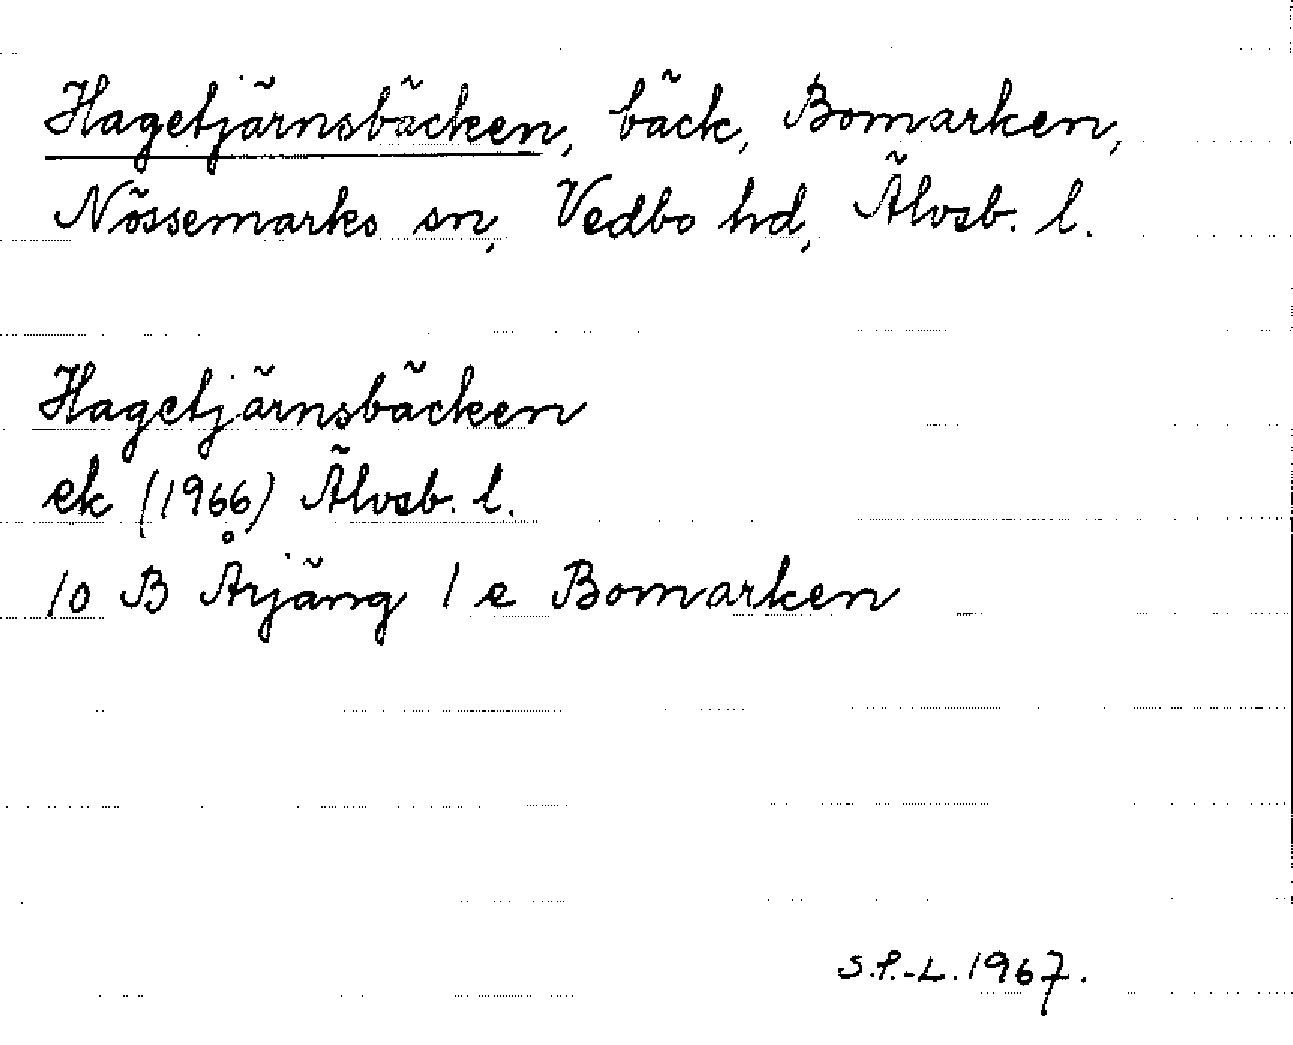 Hagetjärnsbäcken, bäck, Bomarken,
Nössemarks sn, Vedbo hd, Älvsb. l.
Hagetjärnsbäcken
ek (1966) Älvsb. l.
10 B Årjäng 1 e Bomarken
S.P.-L. 1967.